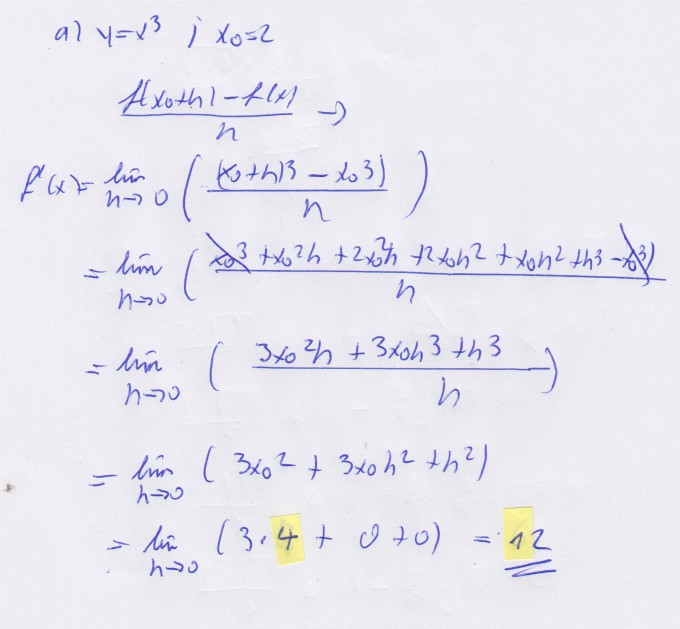 a) y=x³ ; x₀=2
f(x₀+h) - f(x) / h →
f'(x) = lim h→0 ( (x₀+h)3 - x₀3) / h )
= lim h→0 ( x₀³ + x₀²h + 2x₀²h + 2x₀h² + x₀h² + h³ - x₀³) / h
= lim h→0 ( 3x₀²h + 3x₀h³ + h3 / h )
= lim h→0 ( 3x₀² + 3x₀h² + h²)
= lim h→0 (3·4 + 0 + 0) = 12